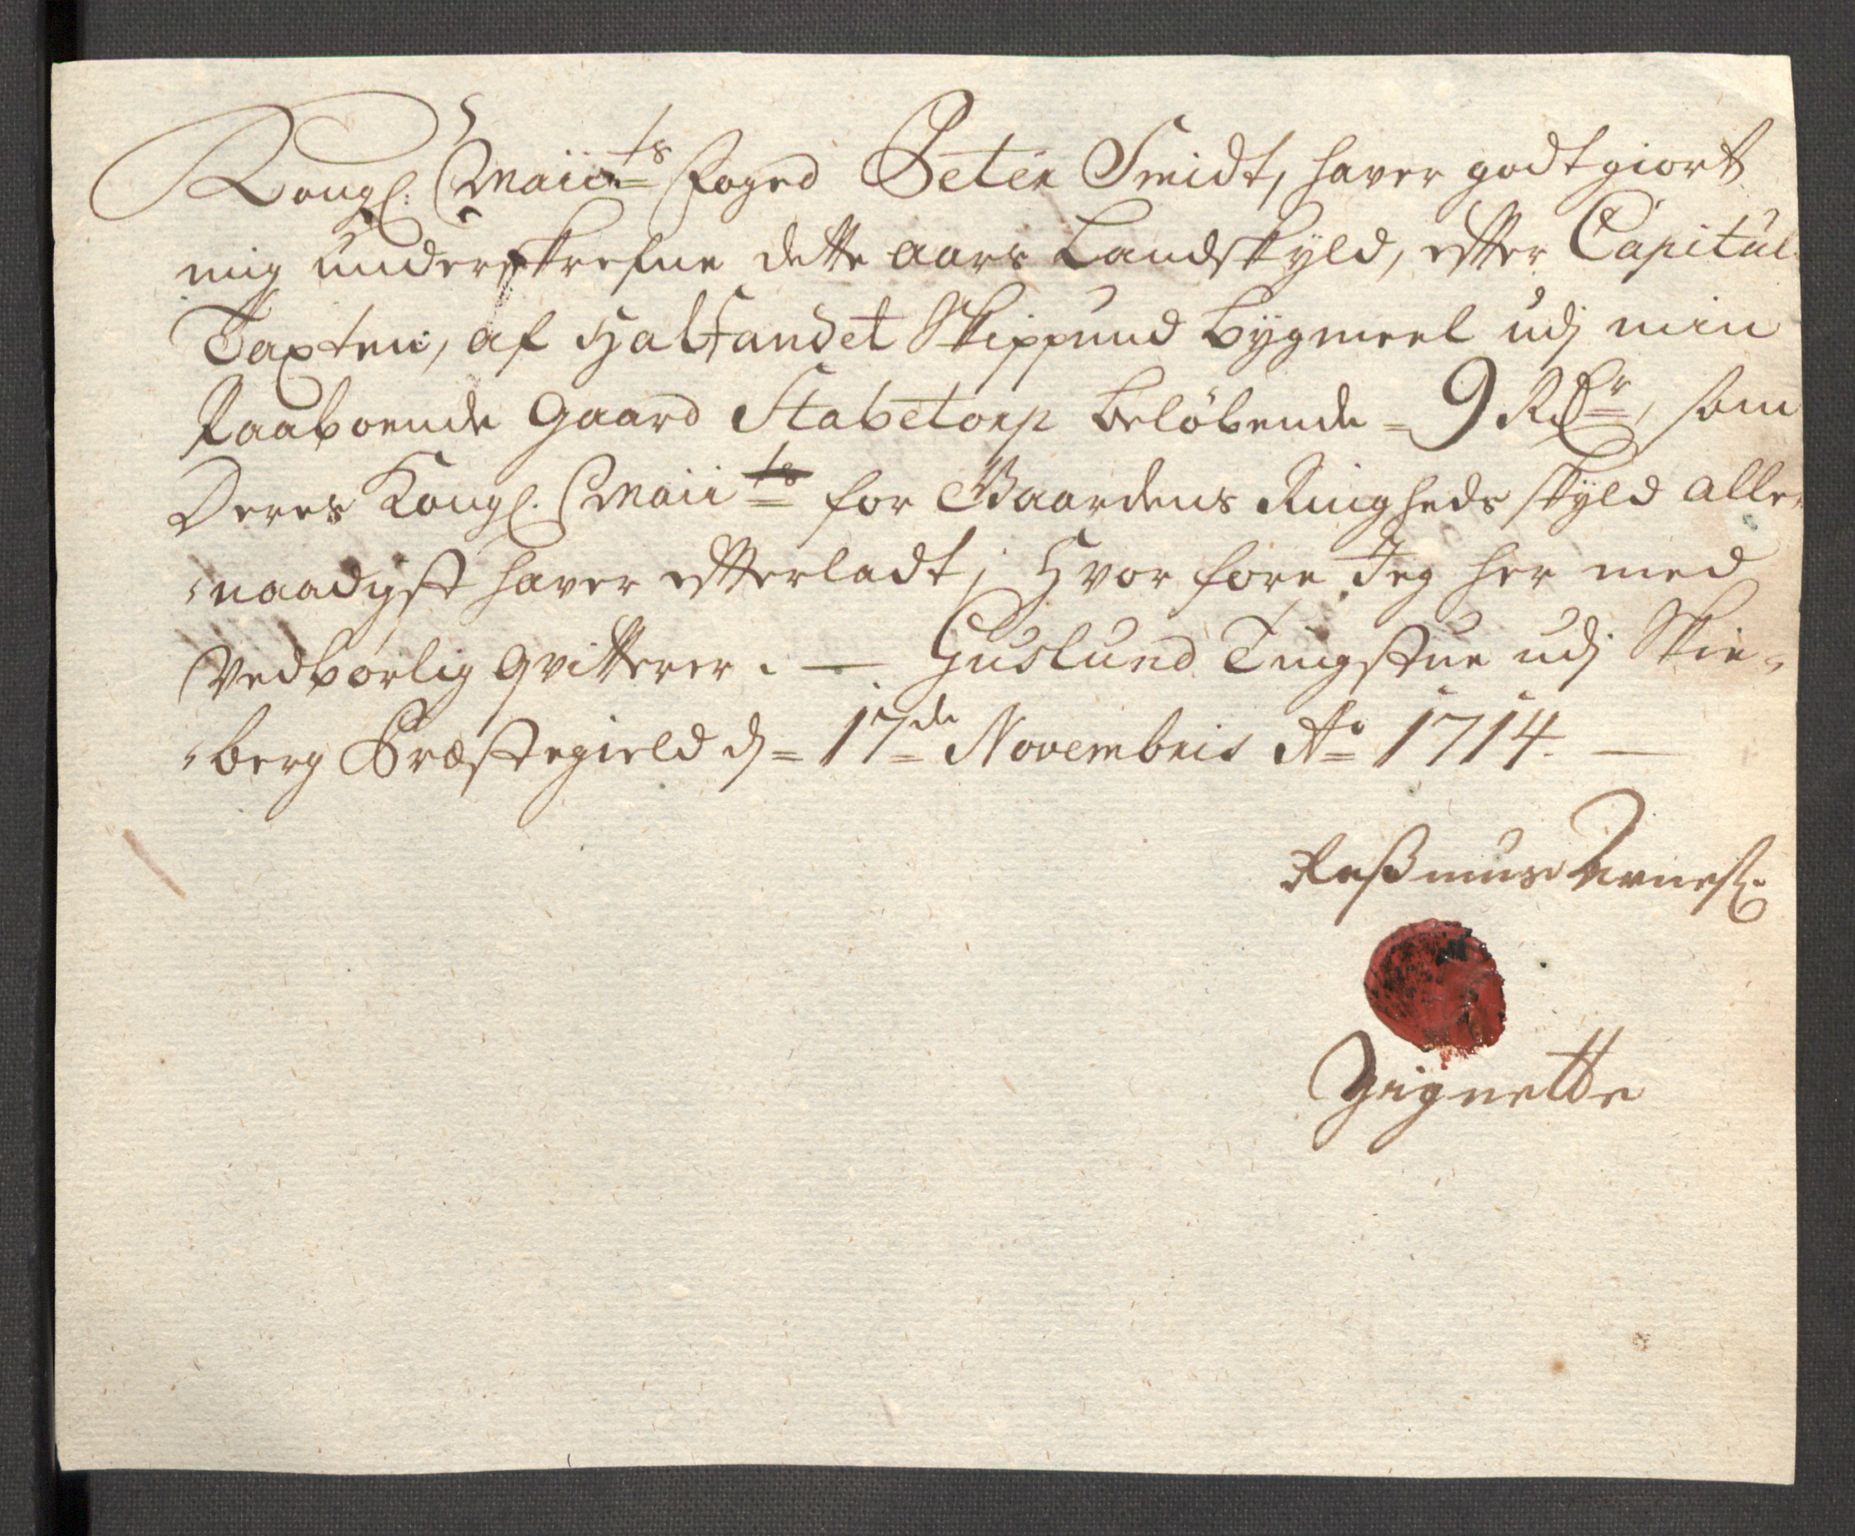 Kongl. Maiits Foged Peter Smidt, haver godtgiort
mig underskrefne dette aars Landskyld, efter Capitul
Taxten, af Halfandet Skippund bygmeel udj min
Paaboende Gaard Stabetorp beløbende = 9 Rdr, som
Deres Kongl. Maiits for Gaardens Ringheds skyld aller
naadigst haver efterladt; Hvor fore Jeg her med
Vedbørlig qvitterer. — Guslund Tingstue udj Skie-
berg Præstegield d = 17de Novembris Ao 1714. —
Rasmus Arnes.
Zignette